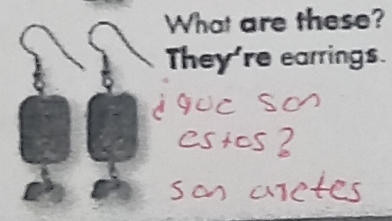 What are these?
They're earrings.
¿que son
estos?
son aretes